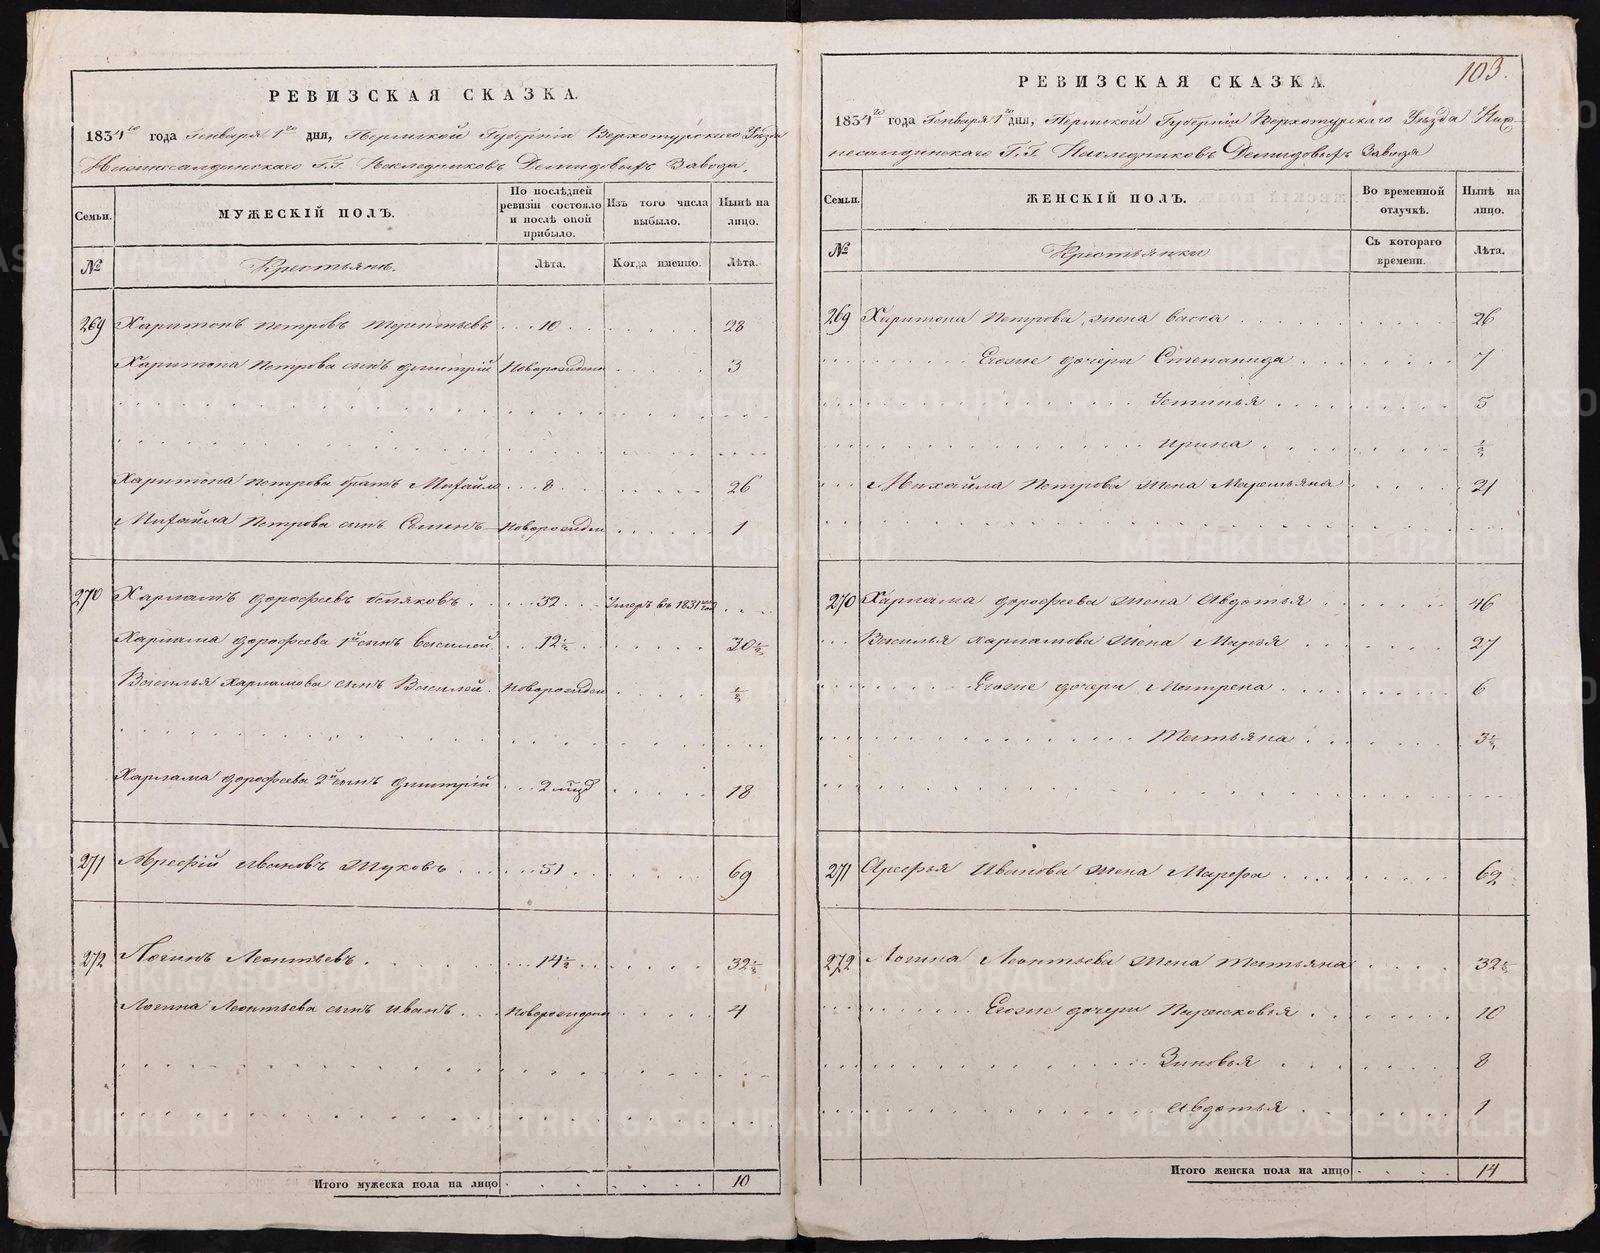 РЕВИЗСКАЯ СКАЗКА.
1834го года Генваря 1го дня, Пермской Губерніи Верхотурскаго Уезда
Нижнесалдинскаго Г.Г. Наследниковъ Демидовыхъ Завода.
Семьи.
МУЖЕСКІЙ ПОЛЪ.
По послѣдней ревизіи состояло и послѣ оной прибыло.
Изъ того числа выбыло.
Нынѣ на лицо.
№ Крестьянъ. Лѣта. Когда именно. Лѣта.
269 Харитонъ Петровъ Терентьевъ 10 28
Харитона Петрова сынъ Дмитрій Новорожден 3
Харитона Петрова братъ Михайло 8 26
Михайла Петрова сынъ Семенъ Новорожден 1
270 Харламъ Дорофеевъ 32 Умеръ въ 1831
Харлама Дорофеева 1й сынъ Василей 12½ 30½
Василья Харламова сынъ Василей Новорожден ½
Харлама Дорофеева 2й сынъ Дмитрій 2 18
271 Арефій Ивановъ Жуковъ 51 69
272 Логинъ Леонтьевъ 14½ 32½
Логина Леонтьева сынъ Иванъ Новорожден 4
Итого мужеска пола на лицо 10
103.
РЕВИЗСКАЯ СКАЗКА.
1834го года Генваря 1го дня, Пермской Губерніи Верхотурскаго Уезда Ниж-
несалдинскаго Г.Г. Наследниковъ Демидовыхъ Завода
Семьи.
ЖЕНСКІЙ ПОЛЪ.
Во временной отлучкѣ.
Нынѣ на лицо.
№ Крестьянки Съ котораго времени. Лѣта.
269 Харитона Петрова жена Васса 26
Егоже дочери Степанида 7
Устинья 5
Ирина ½
Михайла Петрова жена Маремьяна 21
270 Харлама Дорофеева жена Авдотья 46
Василья Харламова жена Марья 27
Егоже дочери Матрена 6
Татьяна 3½
271 Арефья Иванова жена Марфа 62
272 Логина Леонтьева жена Татьяна 32½
Егоже дочери Парасковья 10
Зиновья 8
Авдотья 1
Итого женска пола на лицо 14
METRIKI.GASO-URAL.RU